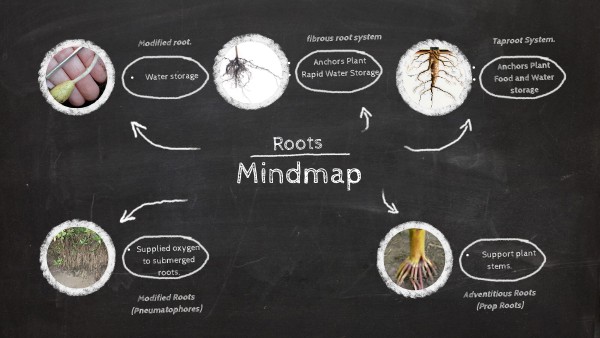 Modified root.
Water storage
fibrous root system
Anchors Plant
Rapid Water Storage
Taproot System.
Anchors Plant
Food and Water
storage
Roots
Mindmap
Supplied oxygen
to submerged
roots.
Modified Roots
(Pneumatophores)
Support plant
stems.
Adventitious Roots
(Prop Roots)